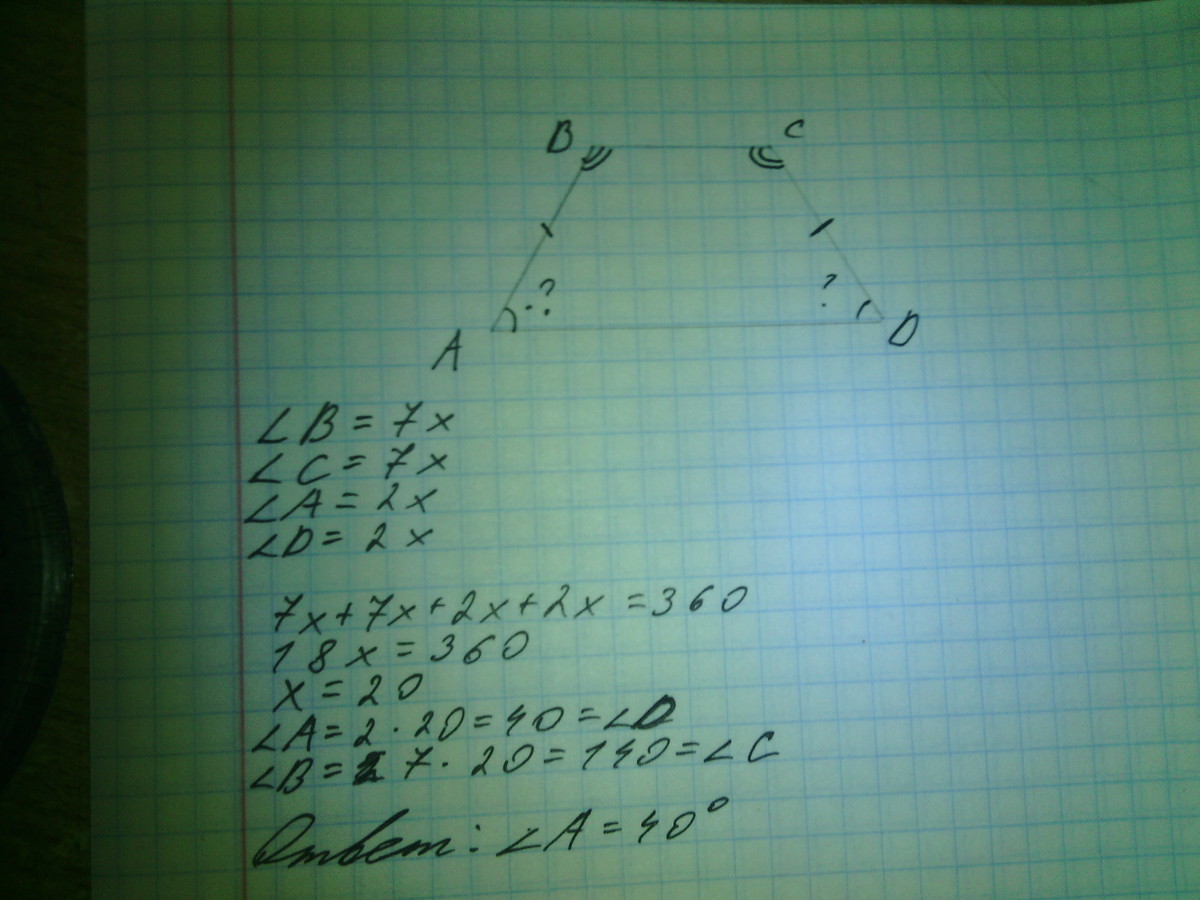 B C
? ?
A D
∠B = 7x
∠C = 7x
∠A = 2x
∠D = 2x
7x+7x+2x+2x = 360
18x = 360
x = 20
∠A = 2 · 20 = 40 = ∠D
∠B = 7 · 20 = 140 = ∠C
Ответ: ∠A = 40°